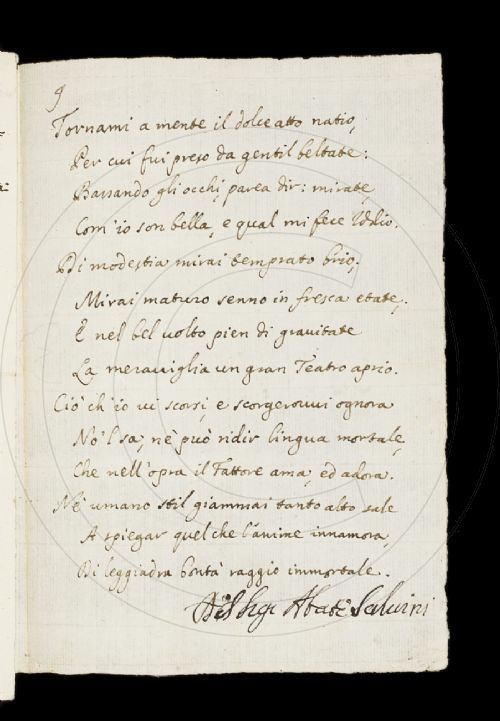 9
Tornami a mente il dolce atto natio,
Per cui fui preso da gentil beltate:
Bassando gli occhi, parea dir: mirate,
Com'io son bella, e qual mi fece Iddio.
Di modestia mirai temprato brio,
Mirai maturo senno in fresca etate,
E nel bel volto pien di gravitate
La meraviglia un gran Teatro aprio.
Ciò ch'io vi scorsi, e scorgerovvi ognora
No'l sa, nè può ridir lingua mortale,
Che nell'opra il Fattore ama, ed adora.
Nè umano stil giammai tanto alto sale
A spiegar quel che l'anime innamora,
Di leggiadra bontà raggio immortale.
Del Sigr Abate Salvini